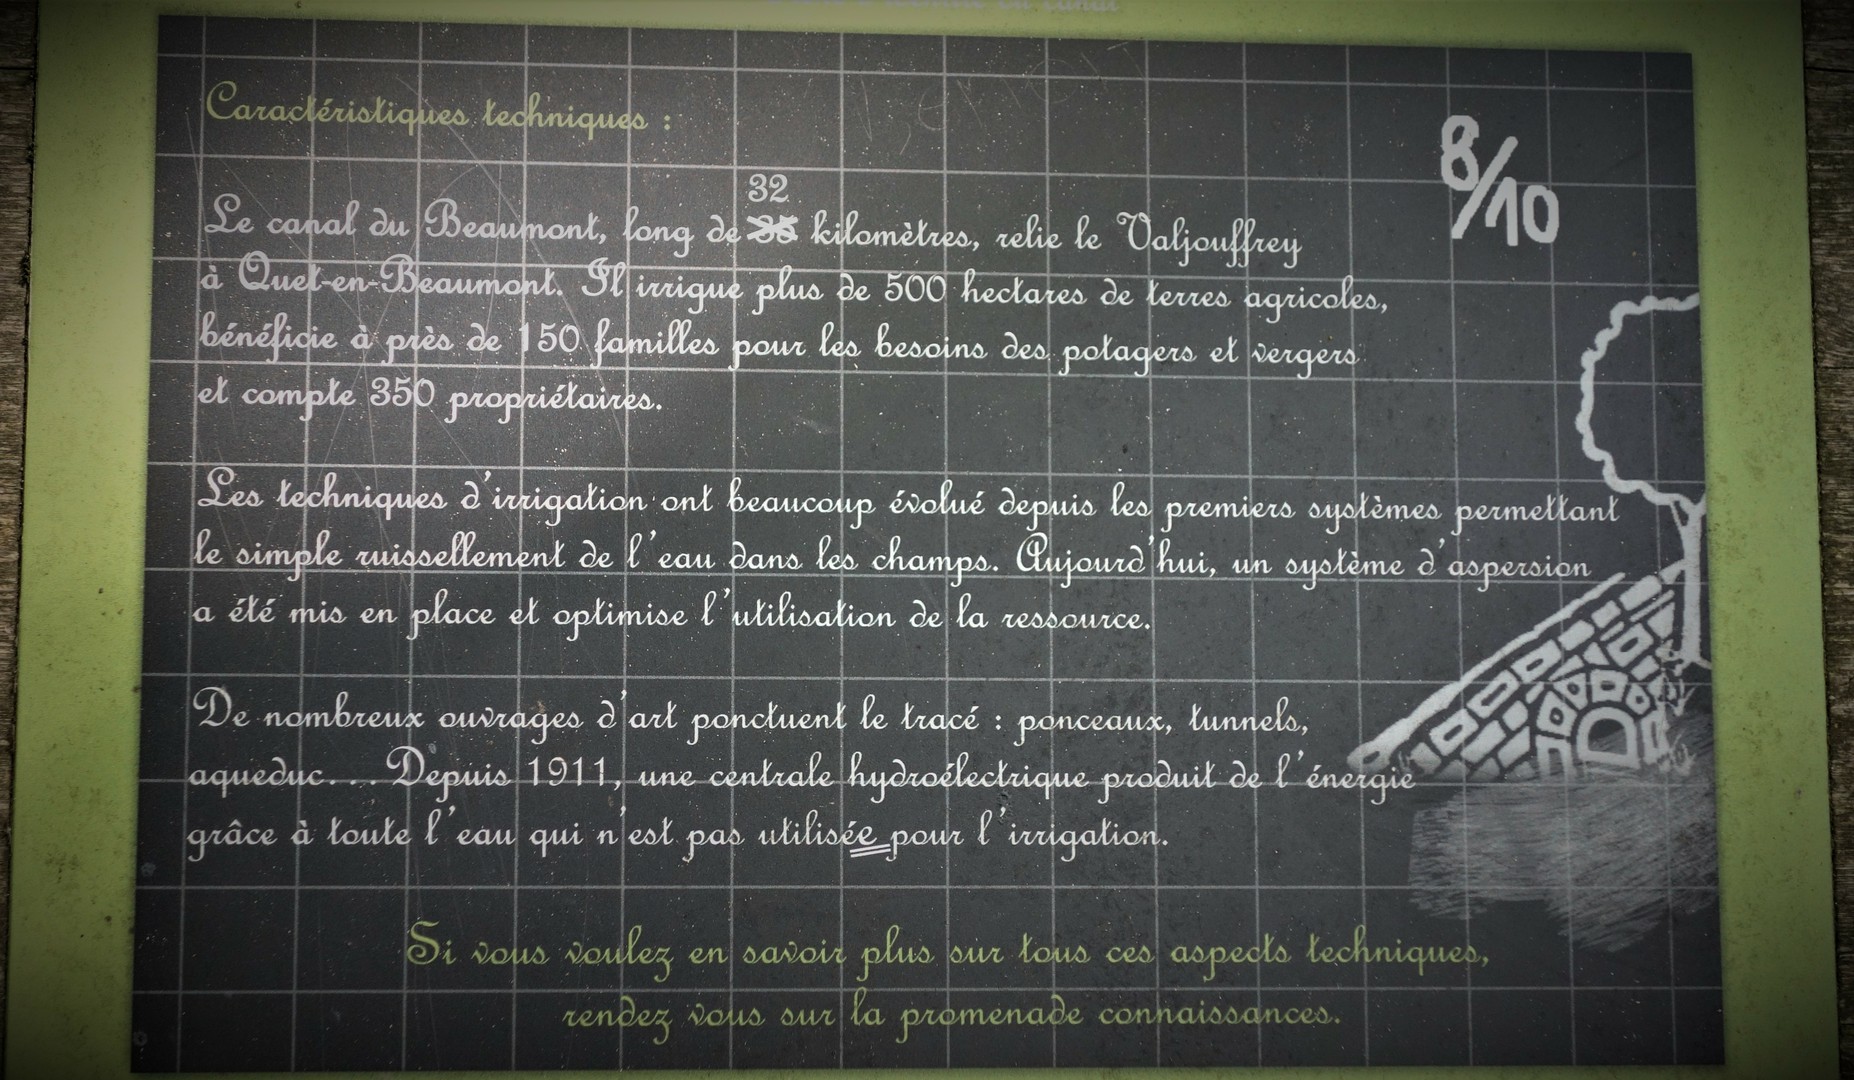 Caractéristiques techniques :
8/10
32
Le canal du Beaumont, long de kilomètres, relie le Valjouffrey
à Quet-en-Beaumont. Il irrigue plus de 500 hectares de terres agricoles,
bénéficie à près de 150 familles pour les besoins des potagers et vergers
et compte 350 propriétaires.
Les techniques d'irrigation ont beaucoup évolué depuis les premiers systèmes permettant
le simple ruissellement de l'eau dans les champs. Aujourd'hui, un système d'aspersion
a été mis en place et optimise l'utilisation de la ressource.
De nombreux ouvrages d'art ponctuent le tracé : ponceaux, tunnels,
aqueduc... Depuis 1911, une centrale hydroélectrique produit de l'énergie
grâce à toute l'eau qui n'est pas utilisée pour l'irrigation.
Si vous voulez en savoir plus sur tous ces aspects techniques,
rendez vous sur la promenade connaissances.